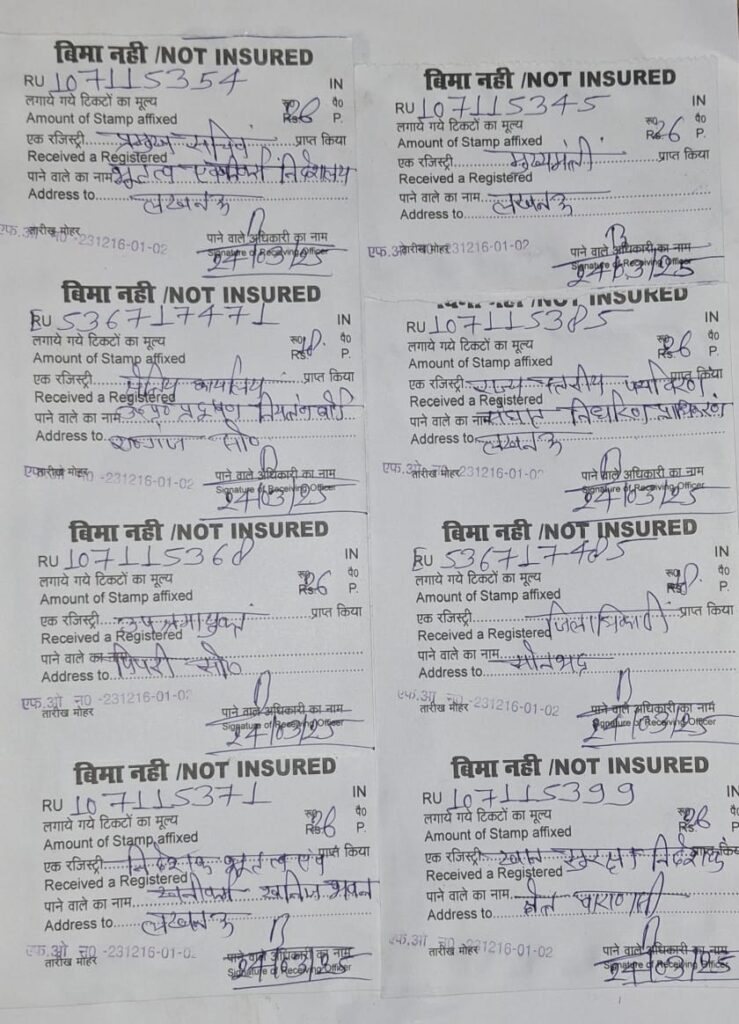 बिमा नही /NOT INSURED
RU 107115354 IN
लगाये गये टिकटों का मूल्य रु० 26 पै०
Amount of Stamp affixed Rs. P.
एक रजिस्ट्री प्रमुख सचिव प्राप्त किया
Received a Registered
पाने वाले का नाम भूतत्व एवं निदेशालय
Address to लखनऊ
एफ.ओ न0 -231216-01-02
तारीख मोहर
पाने वाले अधिकारी का नाम
Signature of Receiving Officer
24/03/25
बिमा नही /NOT INSURED
RU 107115345 IN
लगाये गये टिकटों का मूल्य रु० 26 पै०
Amount of Stamp affixed Rs. P.
एक रजिस्ट्री मुख्यमंत्री प्राप्त किया
Received a Registered
पाने वाले का नाम
Address to लखनऊ
एफ.ओ न0 -231216-01-02
तारीख मोहर
पाने वाले अधिकारी का नाम
Signature of Receiving Officer
24/03/25
बिमा नही /NOT INSURED
RU 536717471 IN
लगाये गये टिकटों का मूल्य रु० पै०
Amount of Stamp affixed Rs. P.
एक रजिस्ट्री क्षेत्रिय कार्यालय प्राप्त किया
Received a Registered
पाने वाले का नाम उ०प्र० प्रदूषण नियंत्रण बोर्ड
Address to सो०
एफ.ओ न0 -231216-01-02
तारीख मोहर
पाने वाले अधिकारी का नाम
Signature of Receiving Officer
24/03/25
बिमा नही /NOT INSURED
RU 107115385 IN
लगाये गये टिकटों का मूल्य रु० 26 पै०
Amount of Stamp affixed Rs. P.
एक रजिस्ट्री राज्य स्तरीय पर्यावरण प्राप्त किया
Received a Registered
पाने वाले का नाम निर्धारण प्राधिकरण
Address to लखनऊ
एफ.ओ न0 -231216-01-02
तारीख मोहर
पाने वाले अधिकारी का नाम
Signature of Receiving Officer
24/03/25
बिमा नही /NOT INSURED
RU 107115368 IN
लगाये गये टिकटों का मूल्य रु० 26 पै०
Amount of Stamp affixed Rs. P.
एक रजिस्ट्री प्राप्त किया
Received a Registered
पाने वाले का नाम
Address to पिपरी सो०
एफ.ओ न0 -231216-01-02
तारीख मोहर
पाने वाले अधिकारी का नाम
Signature of Receiving Officer
24/03/25
बिमा नही /NOT INSURED
RU 536717485 IN
लगाये गये टिकटों का मूल्य रु० पै०
Amount of Stamp affixed Rs. P.
एक रजिस्ट्री जिलाधिकारी प्राप्त किया
Received a Registered
पाने वाले का नाम
Address to सोनभद्र
एफ.ओ न0 -231216-01-02
तारीख मोहर
पाने वाले अधिकारी का नाम
Signature of Receiving Officer
24/03/25
बिमा नही /NOT INSURED
RU 107115371 IN
लगाये गये टिकटों का मूल्य रु० 26 पै०
Amount of Stamp affixed Rs. P.
एक रजिस्ट्री निदेशक भूतत्व एवं प्राप्त किया
Received a Registered
पाने वाले का नाम खनिज भवन
Address to लखनऊ
एफ.ओ न0 -231216-01-02
तारीख मोहर
पाने वाले अधिकारी का नाम
Signature of Receiving Officer
24/03/25
बिमा नही /NOT INSURED
RU 107115399 IN
लगाये गये टिकटों का मूल्य रु० 26 पै०
Amount of Stamp affixed Rs. P.
एक रजिस्ट्री खान सुरक्षा निदेशक प्राप्त किया
Received a Registered
पाने वाले का नाम
Address to वाराणसी
एफ.ओ न0 -231216-01-02
तारीख मोहर
पाने वाले अधिकारी का नाम
Signature of Receiving Officer
24/03/25